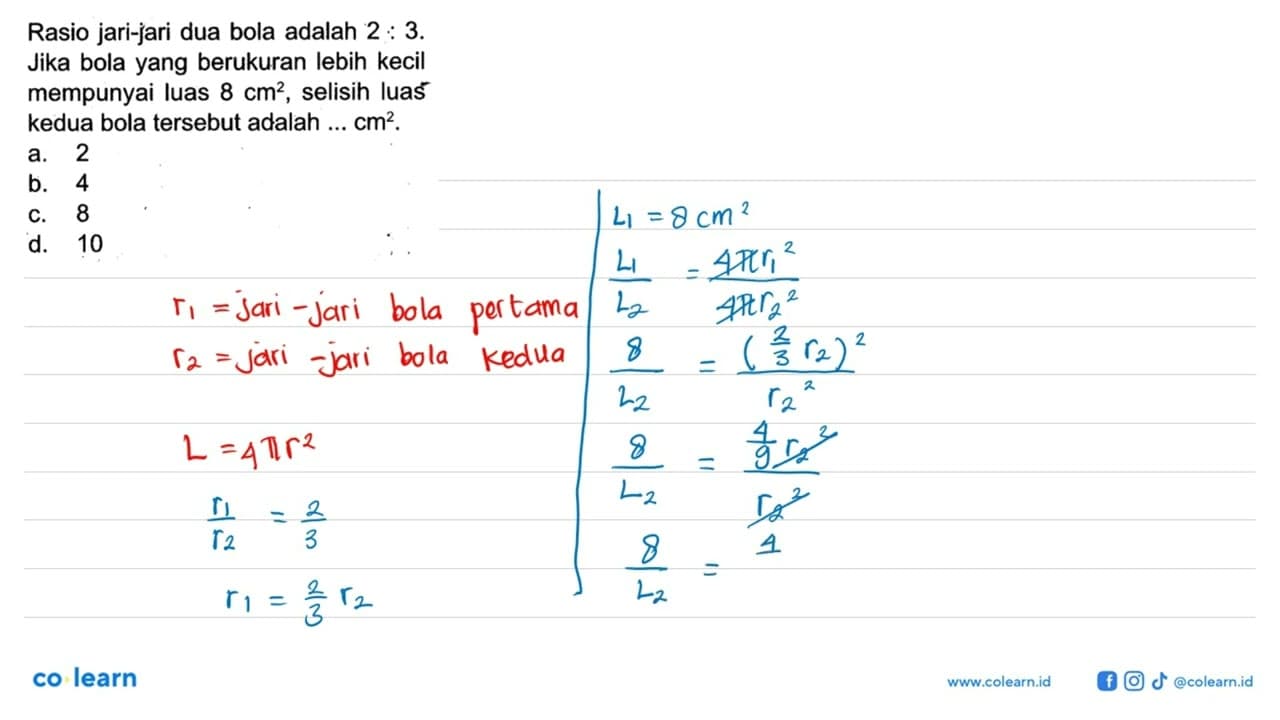 Rasio jari-jari dua bola adalah 2 : 3.
Jika bola yang berukuran lebih kecil
mempunyai luas 8 cm², selisih luas
kedua bola tersebut adalah ... cm².
a. 2
b. 4
c. 8
d. 10
r₁ = jari-jari bola pertama
r₂ = jari-jari bola kedua
L = 4πr²
r₁/r₂ = 2/3
r₁ = 2/3 r₂
L₁ = 8 cm²
L₁/L₂ = 4πr₁²/4πr₂²
8/L₂ = (2/3 r₂)²/r₂²
8/L₂ = 4/9 r₂²/r₂²
8/L₂ = 4
co learn
www.colearn.id
@colearn.id